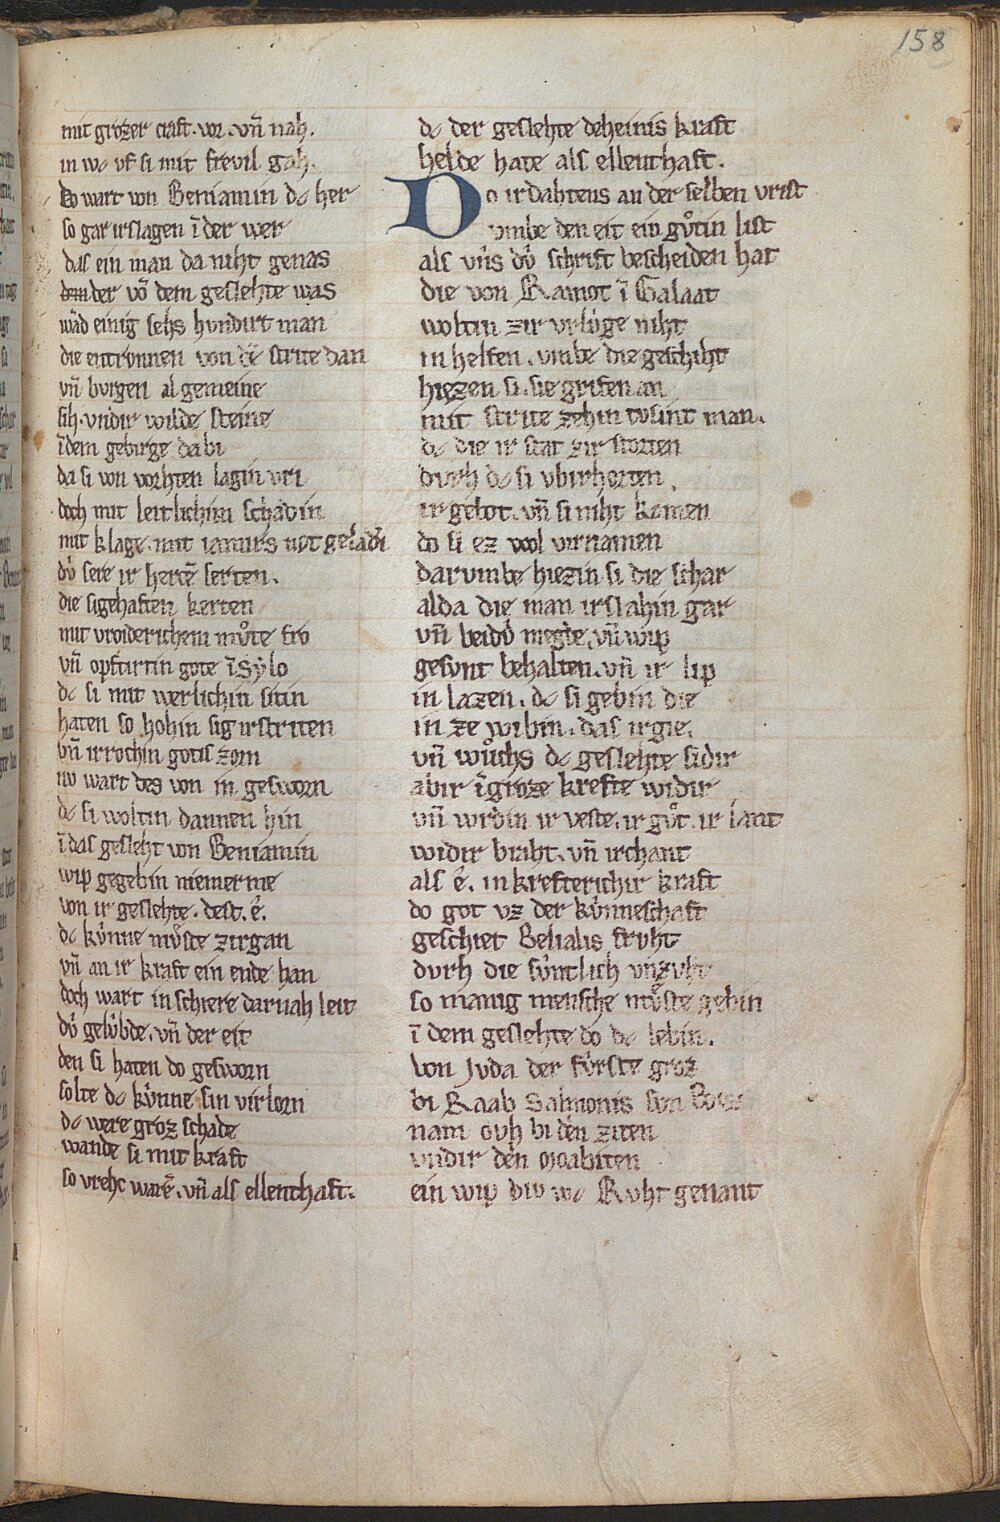 158
mit grozer craft. vor. vn̄ nah.
in wc vf si mit frevil gah.
Do wart von Beniamin dc her
so gar irslagen ī der wer
das ein man da niht genas
der vō dem geslehte was
wād einig sehs hvndirt man
die entrvnnen von dē strite dan
vn̄ bvrgen al gemeine
sih. vndir wilde steine
ī dem gebirge da bi
da si von vorhten lagin vri
doch mit leitlichim schadin
mit klage. mit iamirs not geladē
dv̍ sere ir hercē serten.
die sigehaften kerten
mit vroiderichem mvͦte fro
vn̄ opfirtin gote ī Sẏlo
dc si mit werlichin sitin
haten so hohin sig irstriten
vn̄ irrochin gotis zorn
nv wart des von in gesworn
dc si woltin dannen hin
ī das gesleht von Beniamin
wip gegebin niemer me
von ir geslehte. dest. e̍.
dc kv̍nne mv̍ste zirgan
vn̄ an ir kraft ein ende han
doch wart in schiere darnah leit
dv̍ gelv̍bde. vn̄ der eit
den si haten do gesworn
solte dc kv̍nne sin virlorn
dc were groz schade
wande si mit kraft
so vrehc warē. vn̄ als ellenthaft.
dc der geslehte deheinis kraft
helde hate als ellenthaft.
Do irdahtens an der selben vrist
vmbe den eit ein gvͦtin list
als vn̍s dv̍ schrift bescheiden hat
die von Ramot ī Galaat
woltin zir vrlv̍ge niht
in helfen. vmbe die geschiht
hiezen si. sie grifen an
mit strite zehin tvsint man.
dc die ir stat zir storten
dvrh dc si vbirhorten
ir gebot. vn̄ si niht kamen
do si ez wol virnamen
darvmbe hiezin si die schar
alda die man irslahin gar
vn̄ beidv̍ megde. vn̄ wip
gesvnt behalten. vn̄ ir lip
in lazen. dc si gebin die
in ze wibin. das irgie.
vn̄ wvͦchs dc geslehte sidir
abir ī groze krefte widir
vn̄ wrdin ir veste. ir gvͦt. ir lant
widir braht. vn̄ irchant
als e̍. in krefterichir kraft
do got vz der kv̍nneschaft
geschiet Belialis frvht
dvrh die sv̍ntlich vnzvht
so manig mensche mv̍ste gebin
ī dem geslehte do dc lebin.
von Jvda der fv̍rste groz
bi Raab Salmonis svn Booz
nam ovh bi den ziten
vndir den Moabiten
ein wip div wc Rvht genant